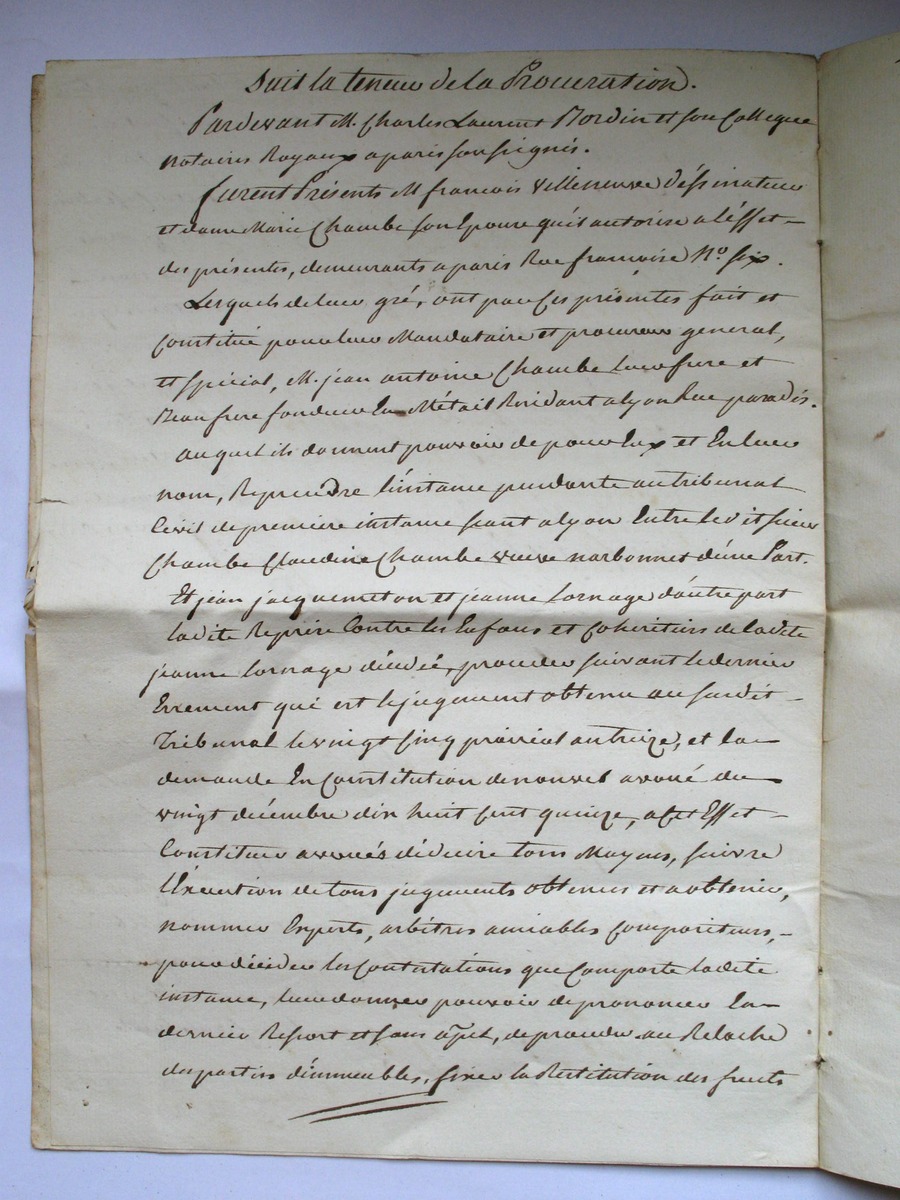 Suit la teneur de la Procuration.
Pardevant M. Charles Laurent Bordin et son Collegue
notaires Royaux a paris soussignés.
furent Présents M francois Villeneuve déssinateur
et dame Marie Chambe son Epouse quil autorise a léffet
des présentes, demeurants a paris Rue francoise No. six.
Lesquels de leur gré, ont par ces présentes fait et
constitué pour leur Mandataire et procureur general,
et spécial, M. jean antoine Chambe leur frere et
Beau frere fondeur En Métail Résidant a lyon Rue paradis.
auquel ils donnent pouvoir de pour Eux et En leur
nom, Reprendre l'instance pendante au tribunal
Civil de premiere instance séant a lyon Entre ledit sieur
Chambe Claudine Chambe veuve narbonnet d'une Part.
Et jean jacquemeton et jeanne Lornage d'autre part
ladite Reprise Contre les Enfans et Coheritiers de ladite
jeanne Lornage décédée, proceder suivant le dernier
Errement qui est le jugement obtenu au susdit
Tribunal le vingt cinq prairial an treize, et la
demande En Constitution de nouvel avoué du
vingt décembre dix huit cent quinze, a cet Effet
Constituer avoués déduire tous Moyens, suivre
l'Exécution de tous jugements obtenus et a obtenir,
nommer Experts, arbitres amiables compositeurs,
pour décider les Contestations que Comporte ladite
instance, leur donner pouvoir de prononcer En
dernier Ressort et sans apel, de proceder au Relache
des parties d'immeubles, fixer la Restitution des fruits